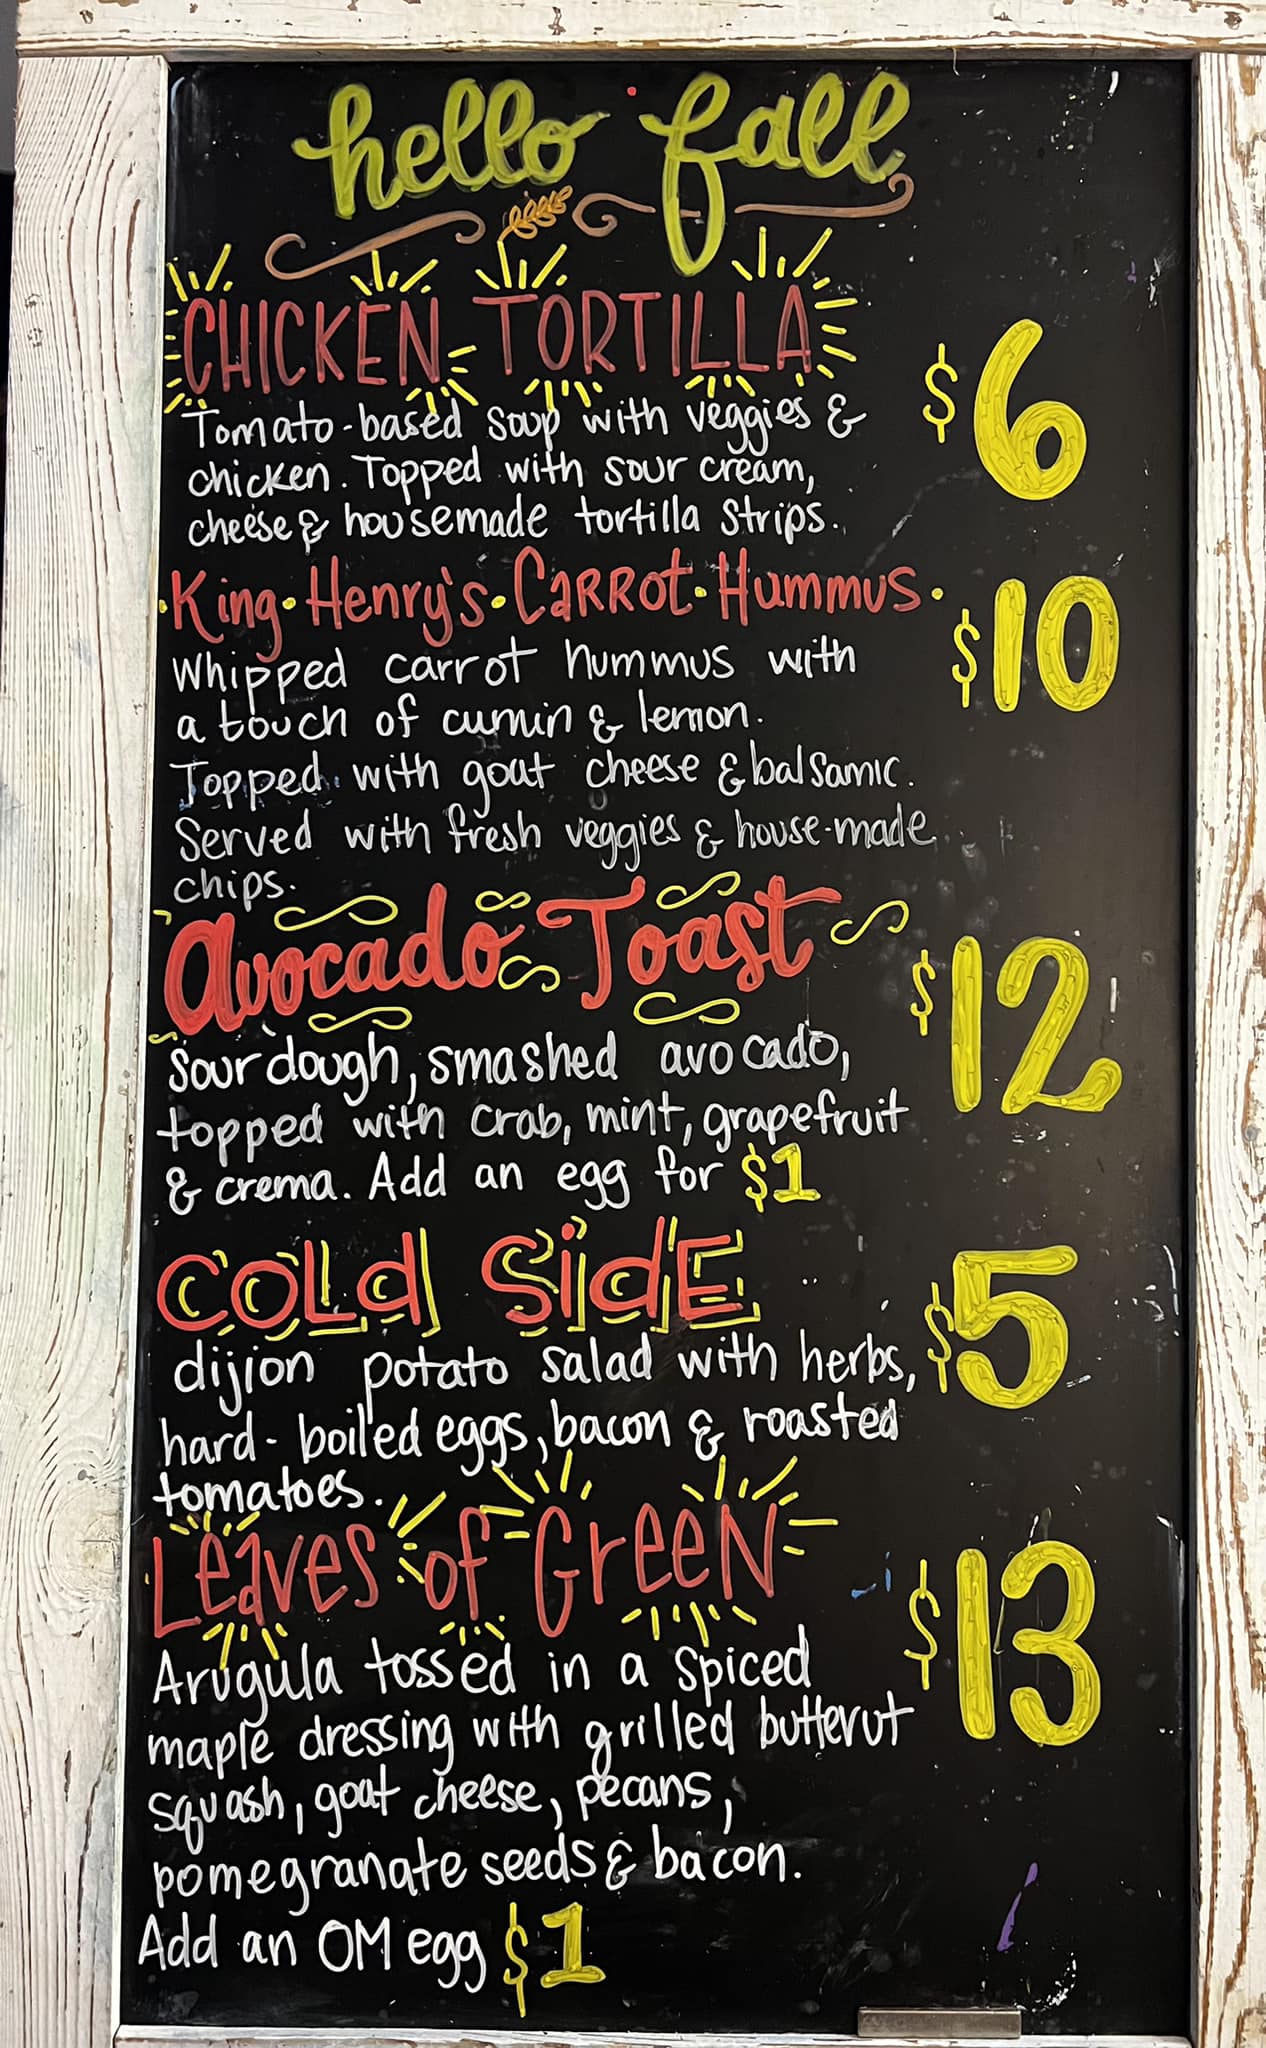 hello fall
CHICKEN TORTILLA
$6
Tomato-based soup with veggies &
chicken. Topped with sour cream,
cheese & housemade tortilla strips.
King·Henry's·Carrot·Hummus·
$10
Whipped carrot hummus with
a touch of cumin & lemon.
Topped with goat cheese & balsamic.
Served with fresh veggies & house-made
chips.
Avocado Toast
$12
Sourdough, smashed avocado,
topped with crab, mint, grapefruit
& crema. Add an egg for $1
COLd SidE
$5
dijion potato salad with herbs,
hard-boiled eggs, bacon & roasted
tomatoes.
Leaves of Green
$13
Arugula tossed in a spiced
maple dressing with grilled butterut
squash, goat cheese, pecans,
pomegranate seeds & bacon.
Add an OM egg $1